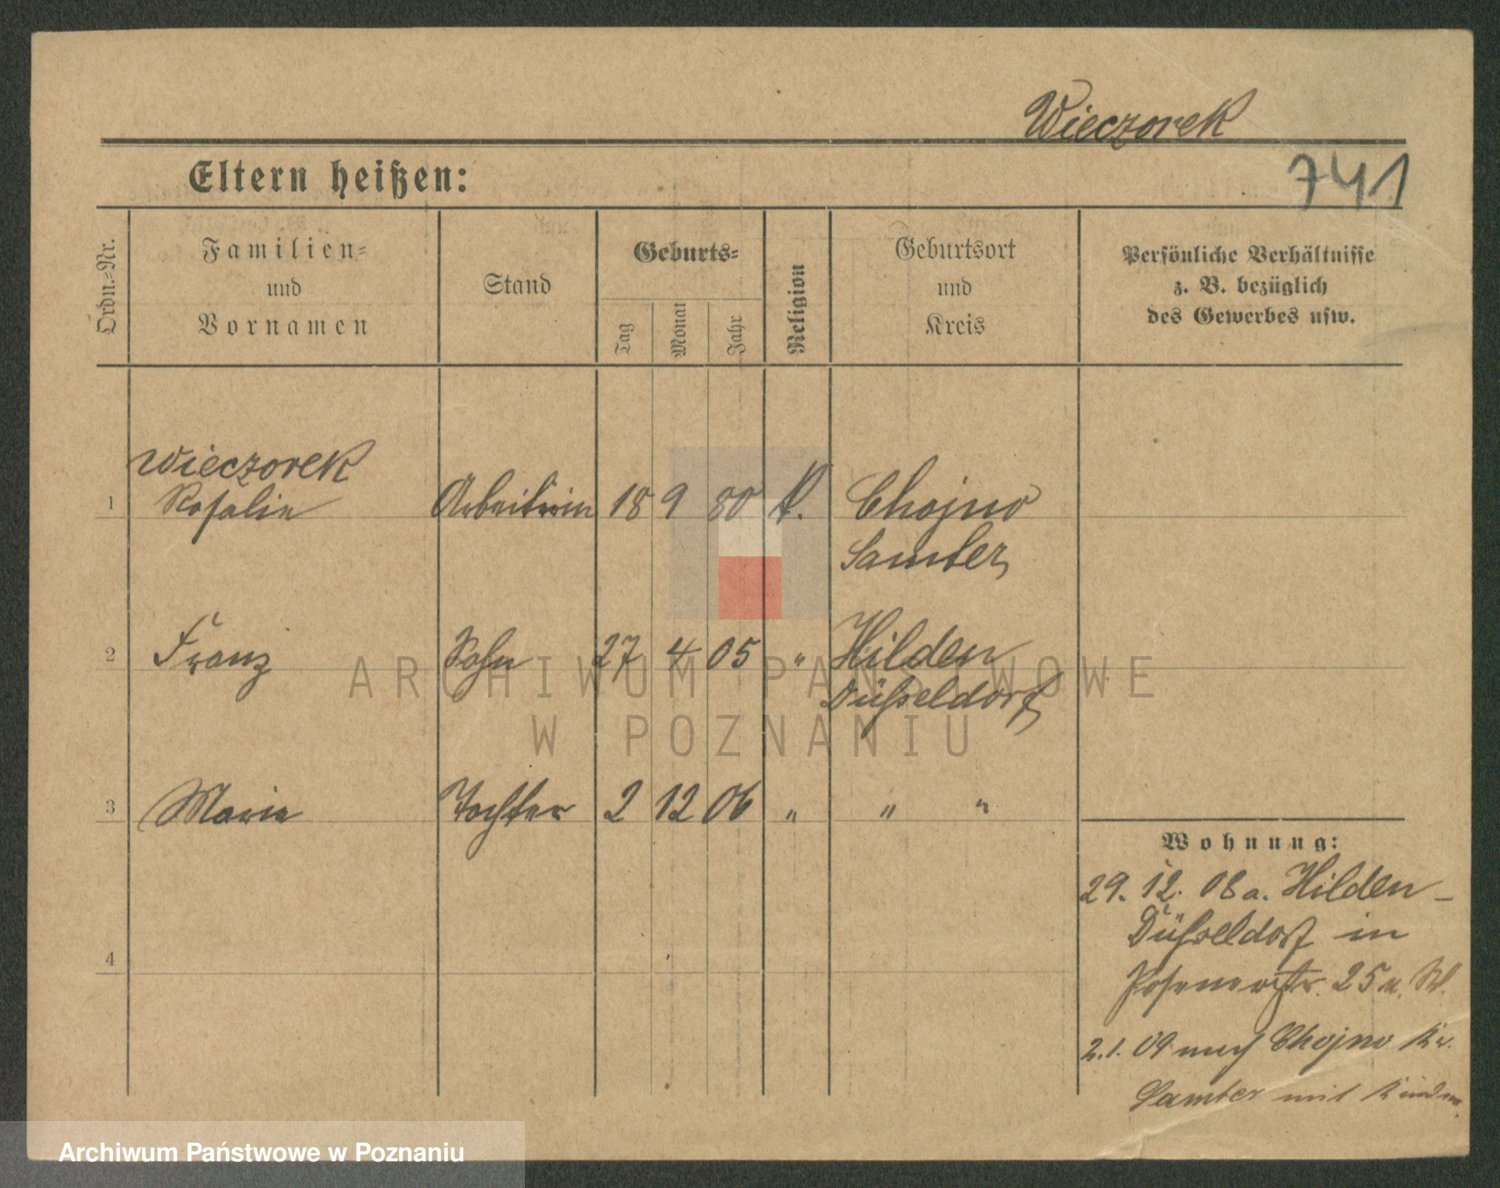 Wieczorek
741
Eltern heißen:
Ordn.-Nr.
Familien-
und
Vornamen
Stand
Geburts-
Tag
Monat
Jahr
Religion
Geburtsort
und
Kreis
Persönliche Verhältnisse
z. B. bezüglich
des Gewerbes usw.
Wieczorek
1 Rosalie Arbeiterin 18 9 80 k. Chojno
Samter
2 Franz Sohn 27 4 05 " Hilden
Düsseldorf
3 Marie Tochter 2 12 06 " " "
4
Wohnung:
29. 12. 08 a. Hilden-
Düsseldorf in
Posenerstr. 25 u.
2.1. 09 nach Chojno Kr.
Samter mit Kindern.
ARCHIWUM PAŃSTWOWE
W POZNANIU
Archiwum Państwowe w Poznaniu